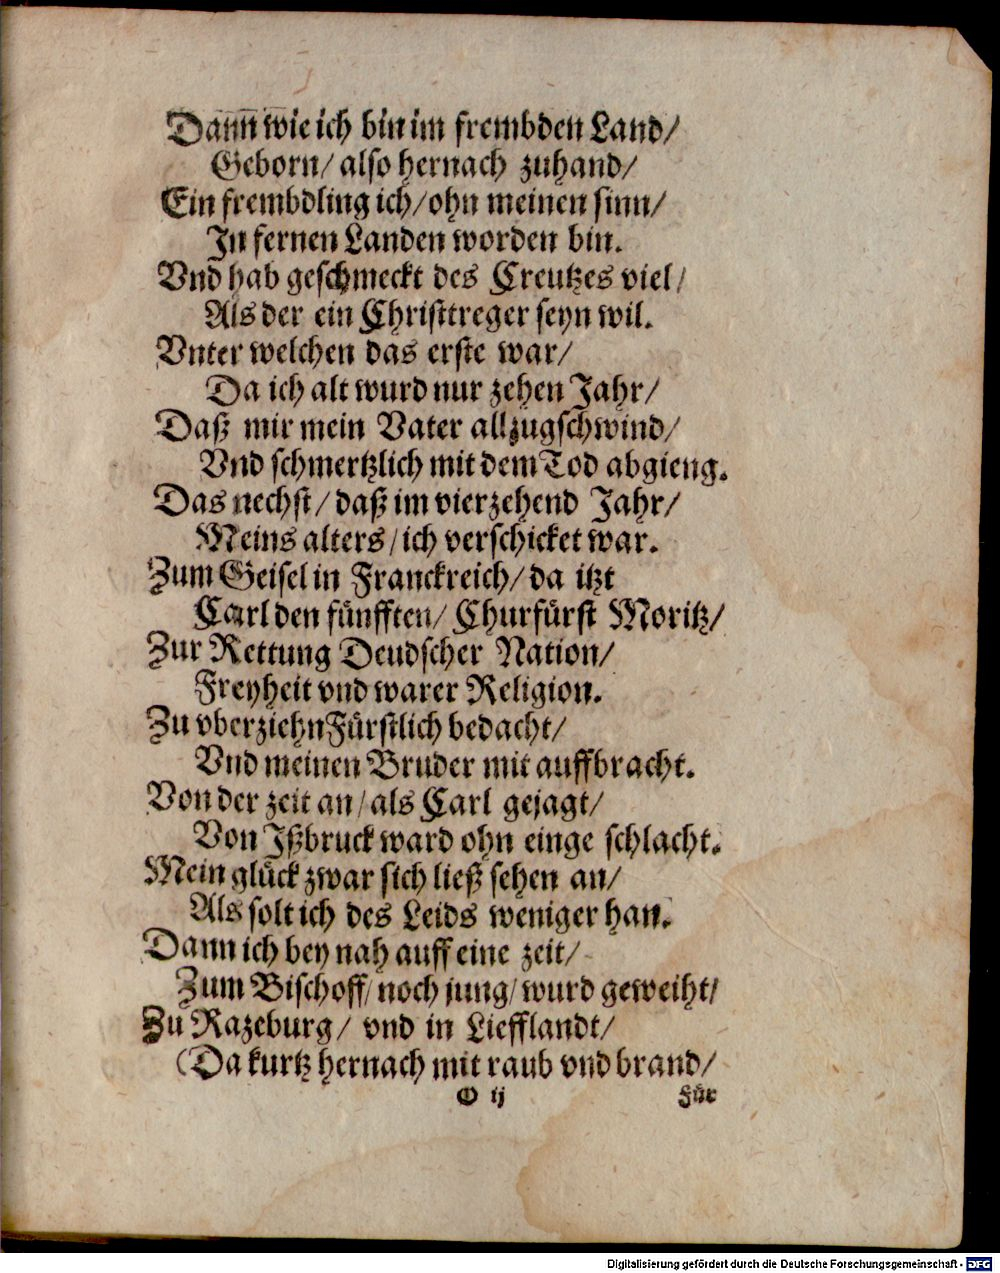 Dann wie ich bin im frembden Land/
Geborn/ also hernach zuhand/
Ein frembdling ich/ ohn meinen sinn/
In fernen Landen worden bin.
Vnd hab geschmeckt des Creutzes viel/
Als der ein Christtreger seyn wil.
Vnter welchen das erste war/
Da ich alt wurd nur zehen Jahr/
Daß mir mein Vater allzugschwind/
Vnd schmertzlich mit dem Tod abgieng.
Das nechst/ daß im vierzehend Jahr/
Meins alters/ ich verschicket war.
Zum Geisel in Franckreich/ da itzt
Carl den fünfften/ Churfürst Moritz/
Zur Rettung Deudscher Nation/
Freyheit vnd warer Religion.
Zu vberziehn Fürstlich bedacht/
Vnd meinen Bruder mit auffbracht.
Von der zeit an/ als Carl gejagt/
Von Ißbruck ward ohn einge schlacht.
Mein glück zwar sich ließ sehen an/
Als solt ich des Leids weniger han.
Dann ich bey nah auff eine zeit/
Zum Bischoff/ noch jung/ wurd geweiht/
Zu Razeburg/ vnd in Liefflandt/
(Da kurtz hernach mit raub vnd brand/
O ij Für
Digitalisierung gefördert durch die Deutsche Forschungsgemeinschaft - DFG